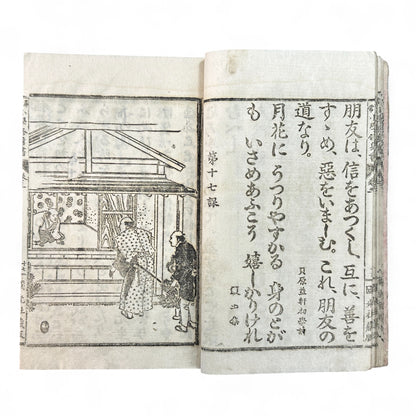 朋友は、信をあつくし、互に、善を
すゝめ、惡をいましむ。これ、朋友の
道なり。
貝原益軒初學訓
月花に うつりやすかる 身のとが
も いさめあふこそ 嬉しかりけれ
第十七課